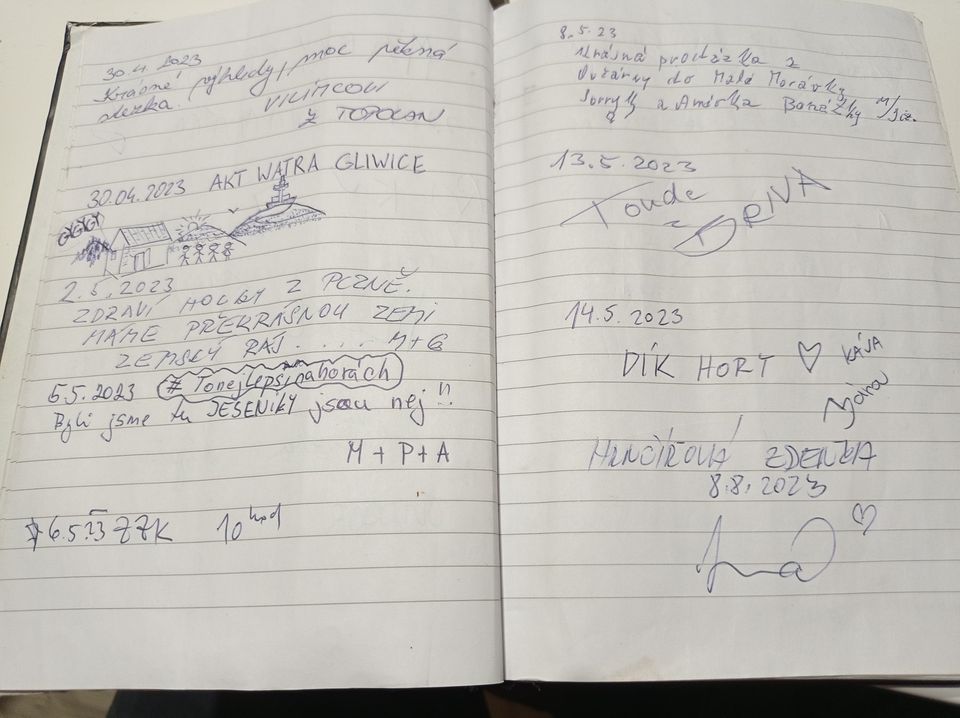 30.4. 2023
Krásné výhledy, moc pěkná
stezka.
VILÍMCOVI
Z TOPOLAN
30.04.2023 AKT WATRA GLIWICE
2.5.2023
ZDRAVÍ HOLKY Z PLZNĚ.
MÁME PŘEKRÁSNOU ZEMI
ZEMSKÝ RÁJ.... M+G
5.5.2023 #Tonejlepsinahorách
Byli jsme tu JESENÍKY jsou nej!!
M + P + A
6.5.23 ZZK 10 hod
8.5.23
Krásná procházka z
Ovčárny do Malé Morávky
13.5.2023
Tonda
z BRNA
14.5.2023
DÍK HORY ♡ KÁJA
ZDENKA
8.8.2023
♡